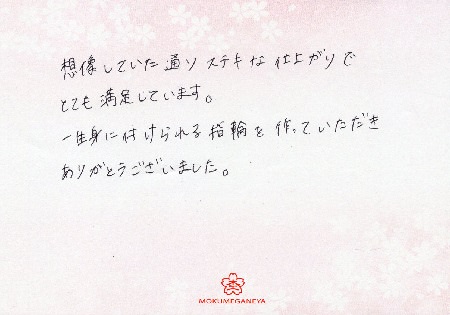 想像していた通りステキな仕上がりで
とても満足しています。
一生身に付けられる指輪を作っていただき
ありがとうございました。
MOKUMEGANEYA